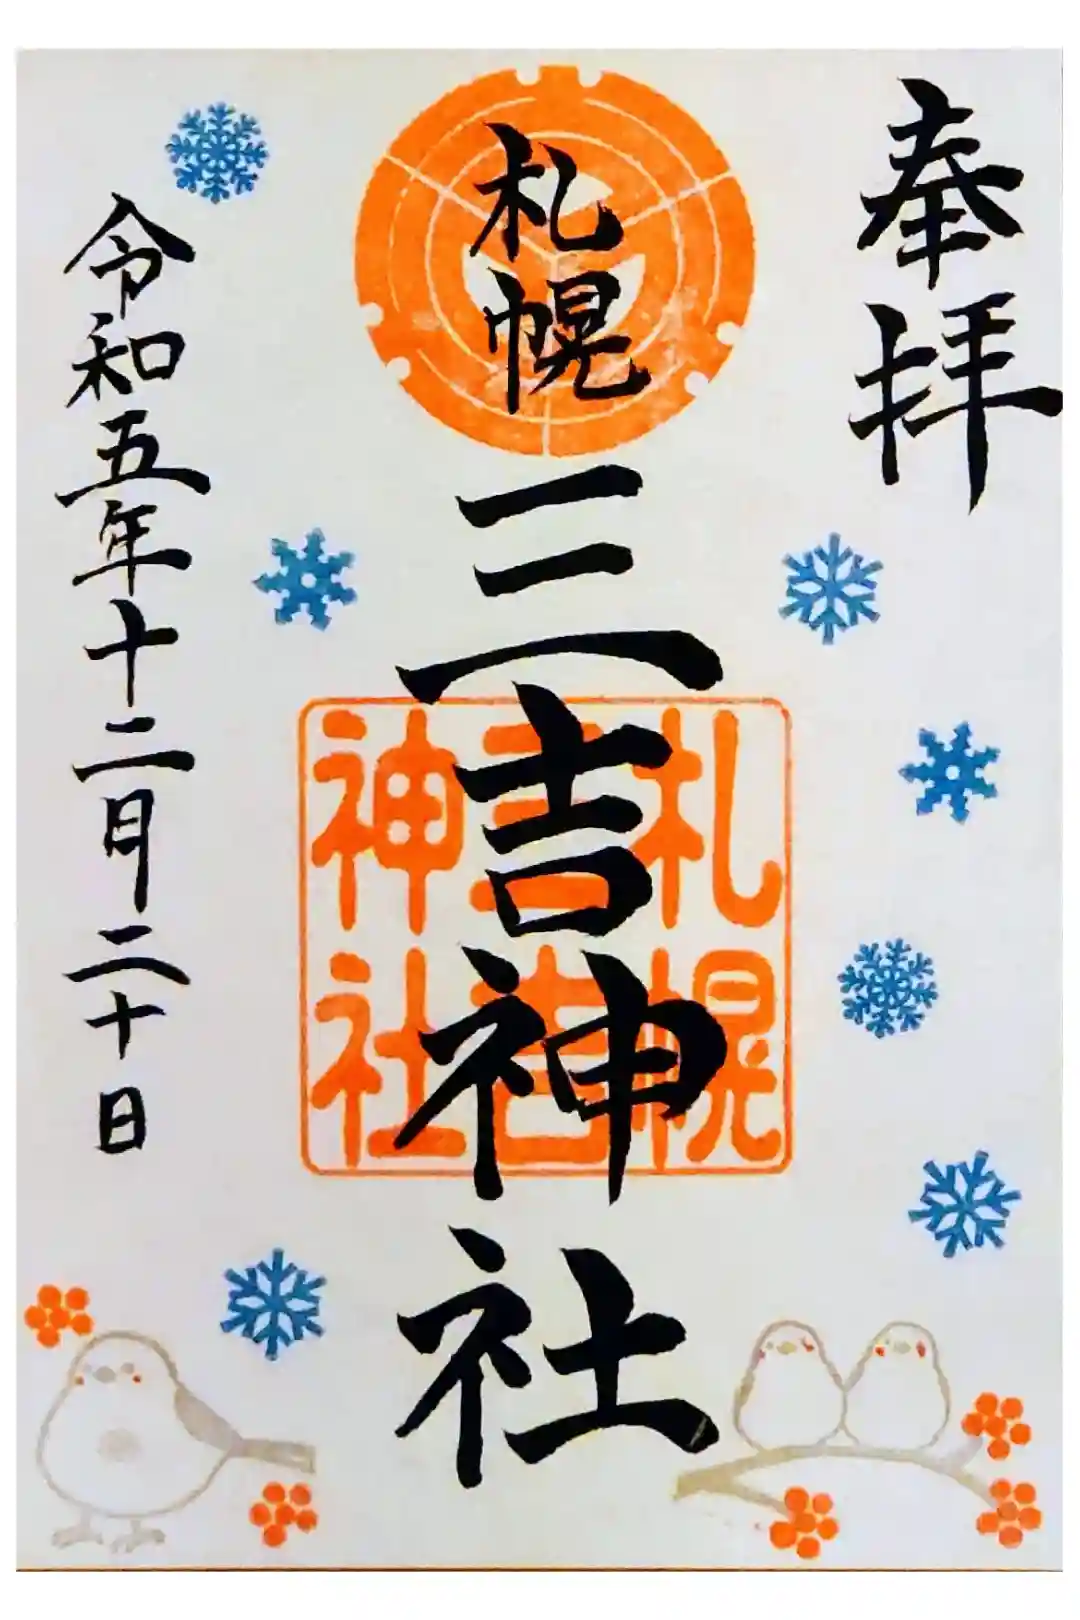 奉拝
札幌
三吉神社
札幌
三吉
神社
令和五年十二月二十日